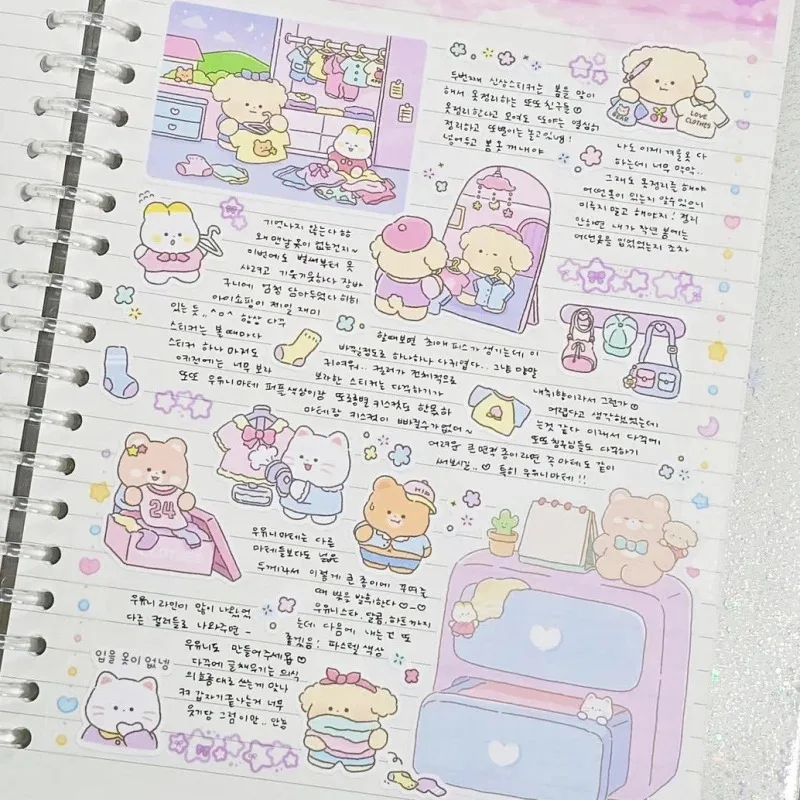 두번째 신상스티커는 봄을 맞이
해서 옷정리하는 또또친구들♡
옷정리한다고 모여도 또야는 열심히
정리하고 또뺑이는 놀고있넹!
넣어두고 봄옷 꺼내야
BEAR
LOVE
CLOTHES
나도 이제 겨울옷 다
하는데 너무 막막..
그래도 옷정리를 해야
어떤옷이 있는지 알수있으니
미루지 말고 해야지! 정리
안하면 내가 작년 봄에는
어떤옷을 입었었는지 조차
기억나지 않는다 하하
왜 맨날 옷이 없는건지~
이번에도 벌써부터 옷
사려고 기웃기웃하다 장바
구니에 엄청 담아두었다 히히
아이쇼핑이 제일 재미
있는 듯.. ^o^ 항상 다꾸
스티커는 볼 때마다
스티커 하나 마저도
예전에는 너무 보라
또또 우유니마테 퍼플색상이랑
할때보면 최애 피스가 생기는데 이
바낄정도로 하나하나 다귀엽다.. 그냥 맹맹
귀여워.. 컬러가 전체적으로
보라한 스티커는 다꾸하기가
또롱별 키스컷도 함뿍하
마테랑 키스컷이 빠질수가없어~
내취향이라서 그런가♡
어렵다고 생각했었는데
는것 같다 이래서 다꾸에
또또친구님들도 다꾸하기
어려운 큰 면적 종이라면 꼭 마테도 같이
써보시길..♡ 특히 우유니마테!!
24
우유니마테는 다른
마테들보다도 넓은
두께라서 이렇게 큰 종이에 꾸며줄
때 빛을 발휘한다♡-♡
우유니스타, 달콤, 하트까지
우유니 라인이 많이 나왔었
는데 다음에 내는건 또
다른 컬러들로 나와주면 -
좋겠음! 파스텔 색상
우유니도 만들어주세욥♡
다꾸에 글채우기는 의식
의흐름대로 쓰는게 맞나
ㅋㅋ 갑자기끝나는거 너무
웃기당 그럼이만.. 안뇽
입을 옷이 없넹